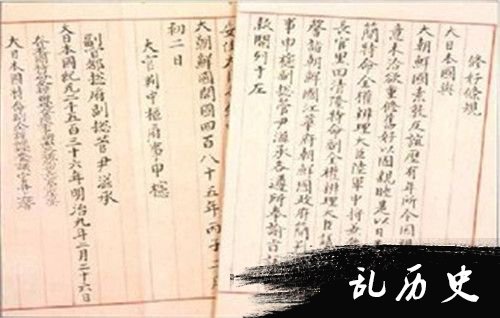 修好條規
大日本國與
大朝鮮國素敦友誼歷有年所今因視
意未洽欲重修舊好以固親睦是以日本
簡特命全權辨理大臣陸軍中將
長官黑田清隆特命副全權辨理大臣議
詣朝鮮國江華府朝鮮國政府簡判
事申櫶副摠管尹滋承各遵所奉諭旨
款開列于左
大朝鮮國開國四百八十五年丙子二月
初二日
大官判中樞府事申櫶
副官都摠府副摠管尹滋承
大日本國紀元二千五百三十六年明治九年二月二十六日
大日本國特命副全權辨理大臣議官井上馨
乱历史